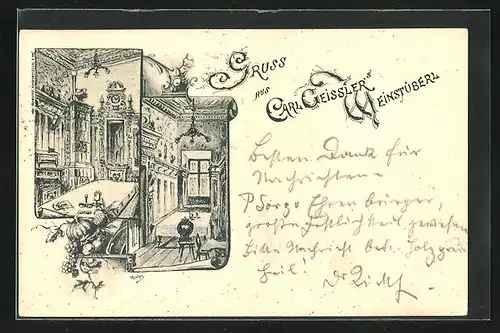 Gruss
aus
Carl Geissler's
Weinstüberl
Besten Dank für
Nachrichten
P Sorgo Ehrenbürger,
große Festlichkeit gewesen
Bitte Nachricht bet.
Heil!